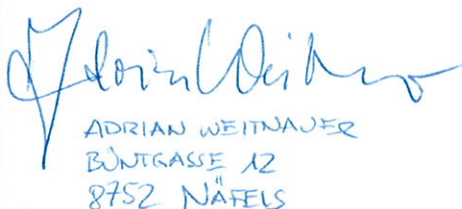 Adrian Weitnauer
ADRIAN WEITNAUER
BÜNTGASSE 12
8752 NÄFELS